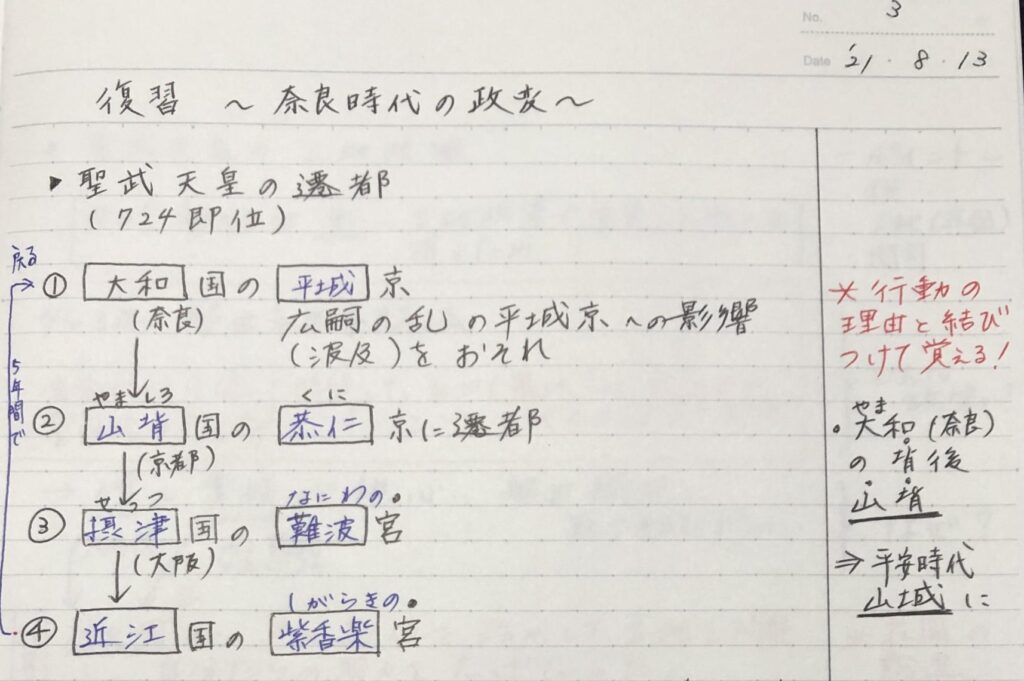 No. 3
Date '21・8・13
復習 ～ 奈良時代の政変～
▶ 聖武天皇の遷都
(724即位)
戻る
① 大和 国の 平城 京
(奈良) 広嗣の乱の平城京への影響
(波及)をおそれ
5年間で
やましろ くに
② 山背 国の 恭仁 京に遷都
(京都)
せっつ なにわの・
③ 摂津 国の 難波 宮
(大阪)
しがらきの・
④ 近江 国の 紫香楽 宮
*行動の
理由と結び
つけて覚える!
やま
・大和(奈良)
の背後
山背
⇒平安時代
山城に